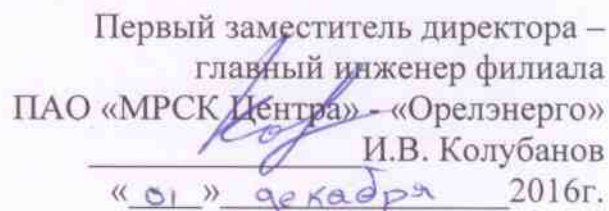 Первый заместитель директора –
главный инженер филиала
ПАО «МРСК Центра» - «Орелэнерго»
И.В. Колубанов
« 01 » декабря 2016г.